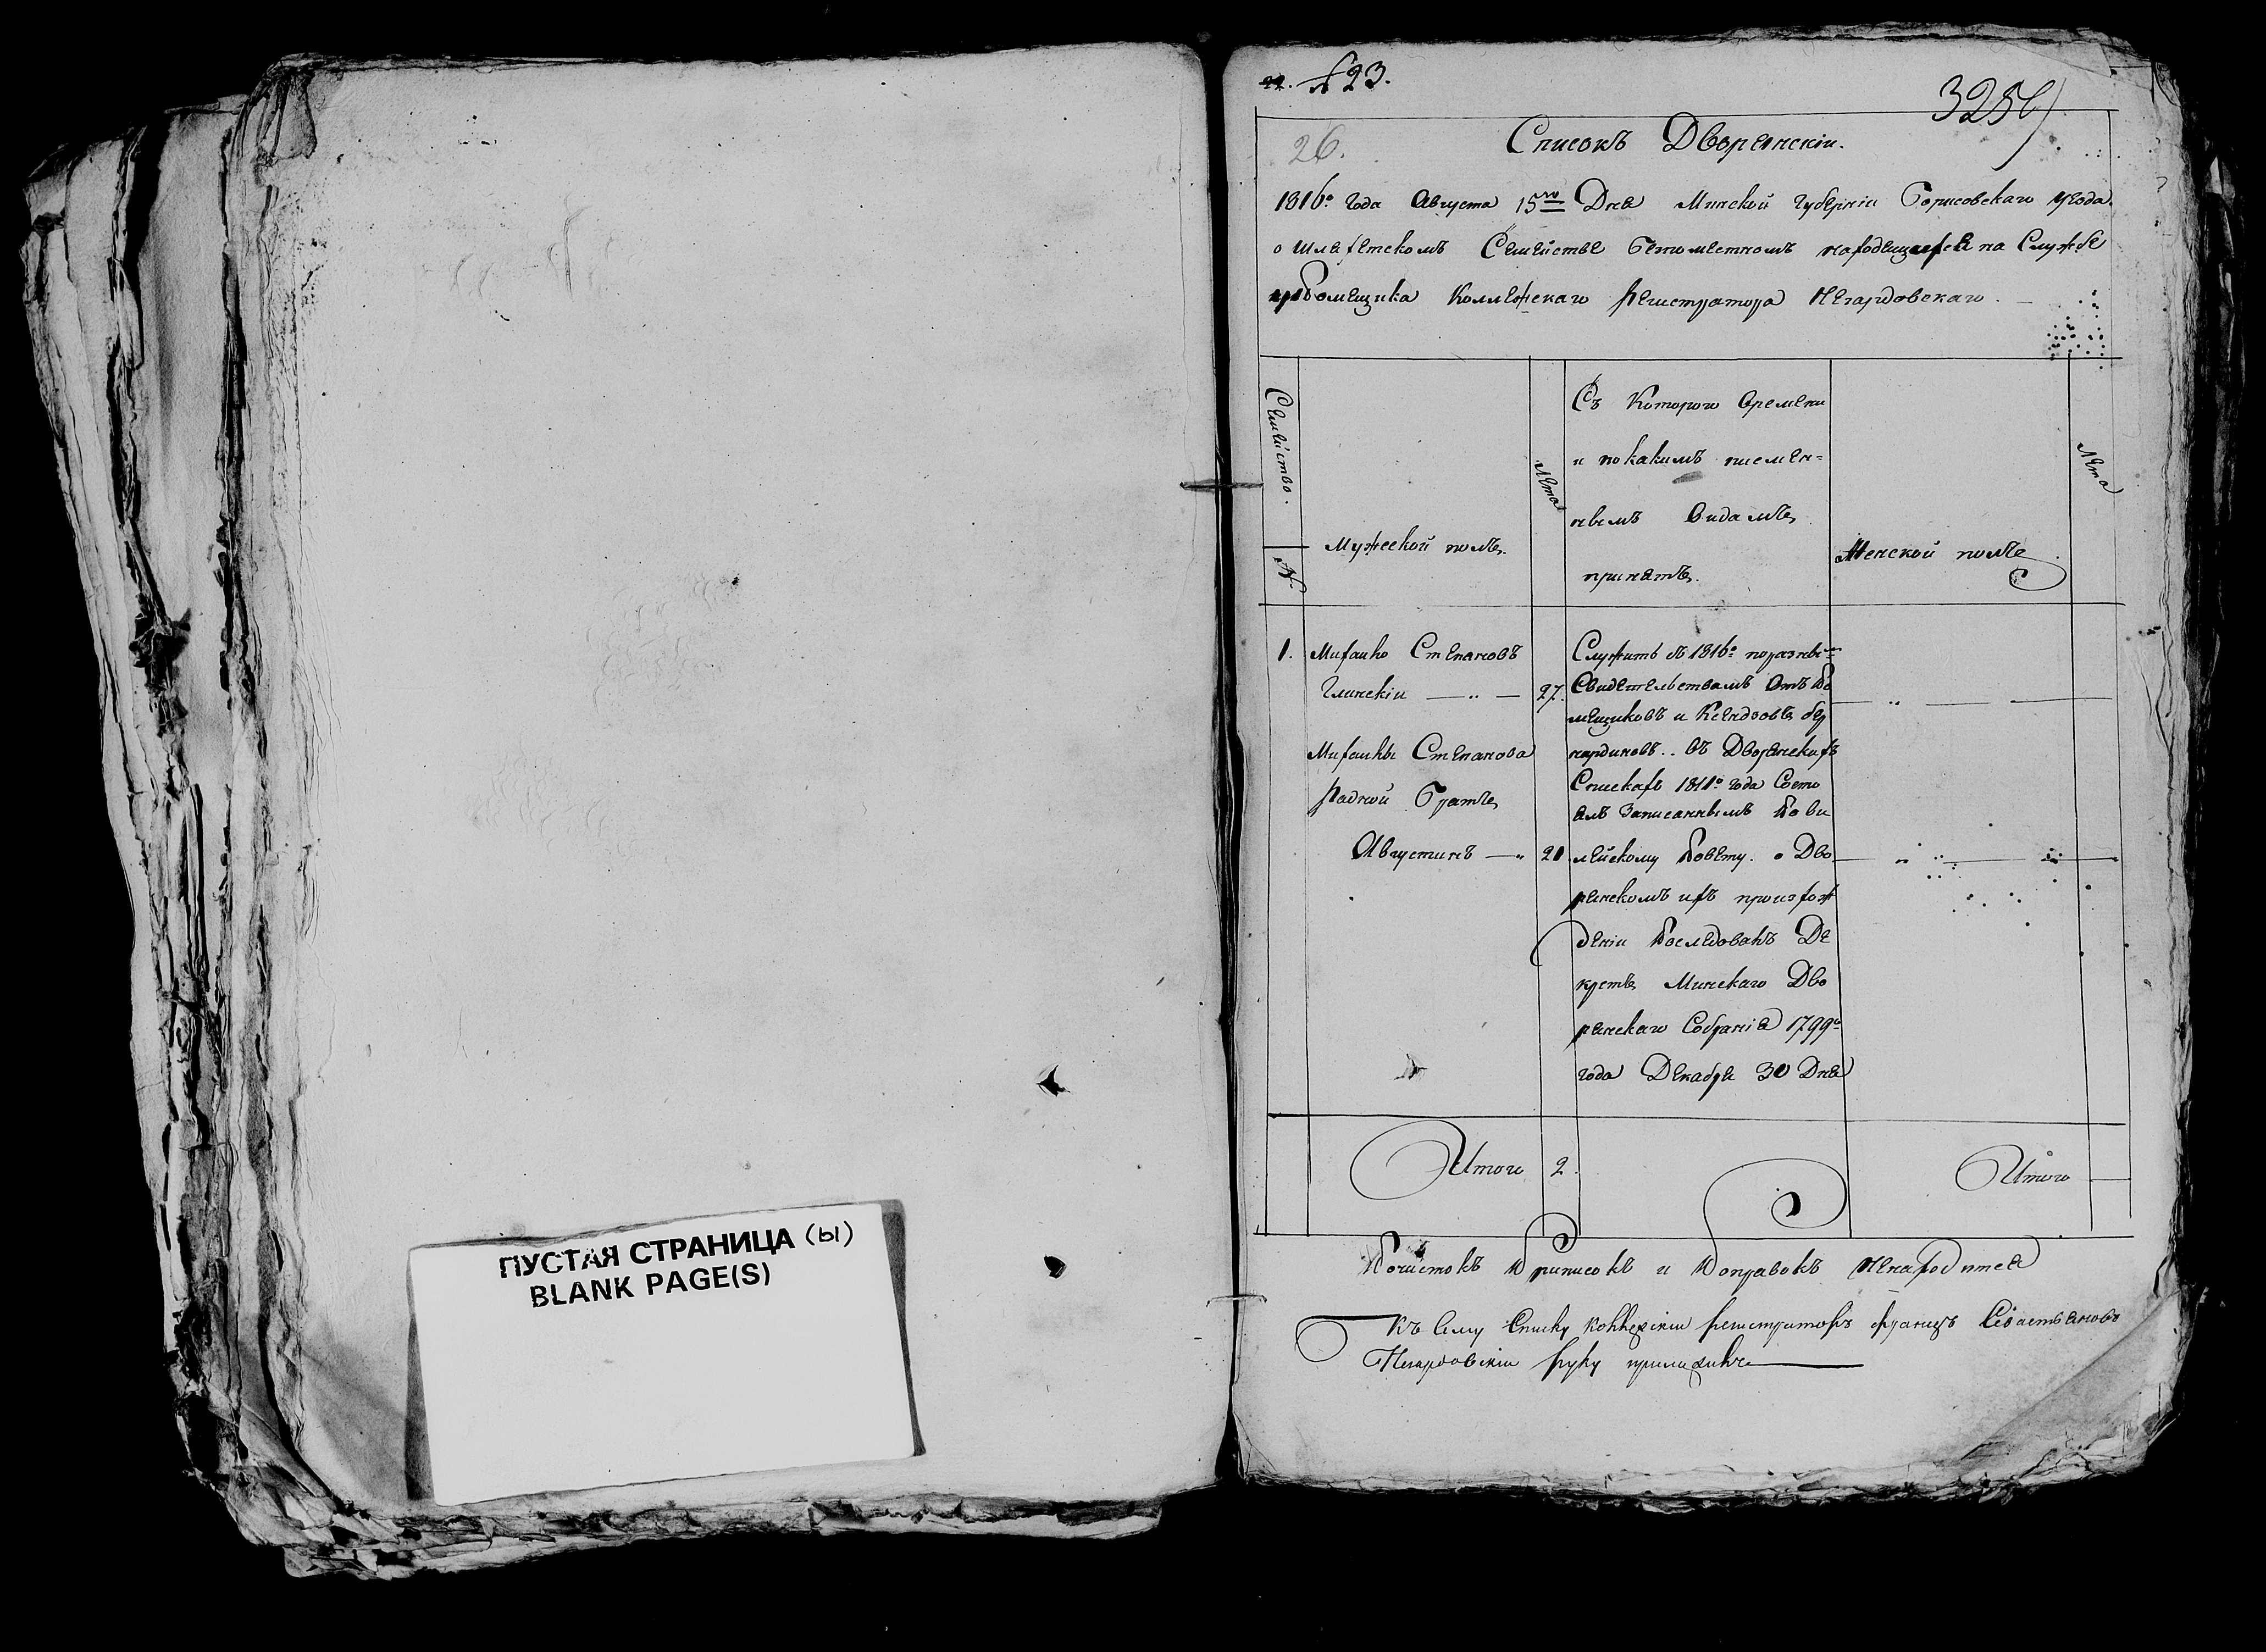 ПУСТАЯ СТРАНИЦА (ы)
BLANK PAGE(S)
№ 23.
26.
Списокъ Дворянскіи.
1816о года Августа 15го Дня Минской Губерніи Борисовскаго уезда
о шляхетскомъ Семействе безпоместномъ находящемся на Службе
у помещика Коллежскаго Регистратора Негардовскаго
Семейство.
№
Мужеской полъ.
лета
Съ Котораго времени
и по какимъ писмен=
нымъ видамъ
принятъ.
Женской полъ
лета
1. Михайло Степановъ
Глинскіи — „ — 27.
Михайлы Степанова
Радной братъ
Августинъ — „ 20
Служитъ съ 1816о по разнымъ
Свидетельствамъ отъ по
мещиковъ и Ксендзовъ бер
нардиновъ.. въ Дворянскихъ
Спискахъ 1811о года Состо
ялъ Записаннымъ по Ви
лейскому Повету. о Дво
рянскомъ ихъ происхож
деніи Последовалъ Де
кретъ Минскаго Дво
рянскаго Собранія 1799о
года Декабря 30 Дня
Итого 2.
Итого
Почистокъ Приписокъ и Поправокъ Ненаходится
Къ Сему Списку коллежскіи регистраторъ Францъ Севастьяновъ
Негардовскіи руку приложилъ